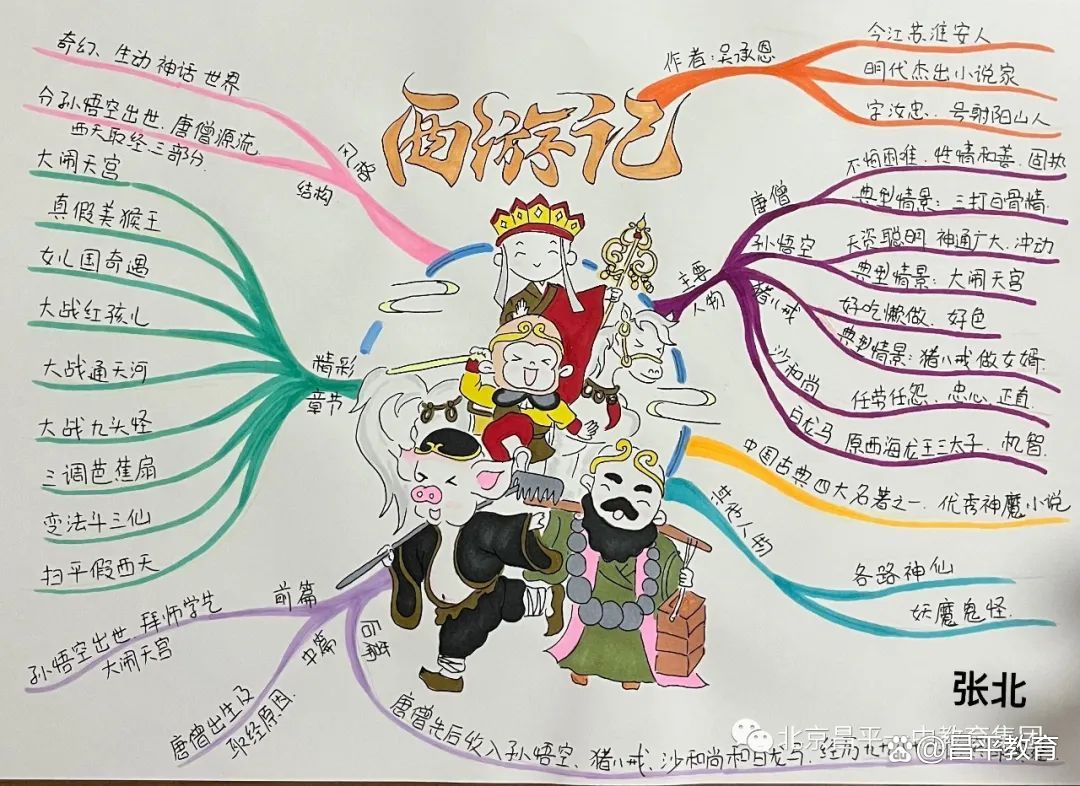 西游记
作者:吴承恩
今江苏淮安人
明代杰出小说家
字汝忠、号射阳山人
主要
人物
唐僧
不惧困难、性情和善、固执
典型情景:三打白骨精
孙悟空
天资聪明、神通广大、冲动
典型情景:大闹天宫
猪八戒
好吃懒做、好色
典型情景:猪八戒做女婿
沙和尚
任劳任怨、忠心、正直
白龙马
原西海龙王三太子、机智
中国古典四大名著之一、优秀神魔小说
其他人物
各路神仙
妖魔鬼怪
风格
奇幻、生动 神话 世界
结构
分孙悟空出世、唐僧源流
西天取经三部分
精彩
章节
大闹天宫
真假美猴王
女儿国奇遇
大战红孩儿
大战通天河
大战九头怪
三调芭蕉扇
变法斗三仙
扫平假西天
前篇
孙悟空出世、拜师学艺
大闹天宫
中篇
唐僧出生及
取经原因
后篇
唐僧先后收入孙悟空、猪八戒、沙和尚和白龙马、经历九九
张北
北京昌平一中教育集团
昌平教育